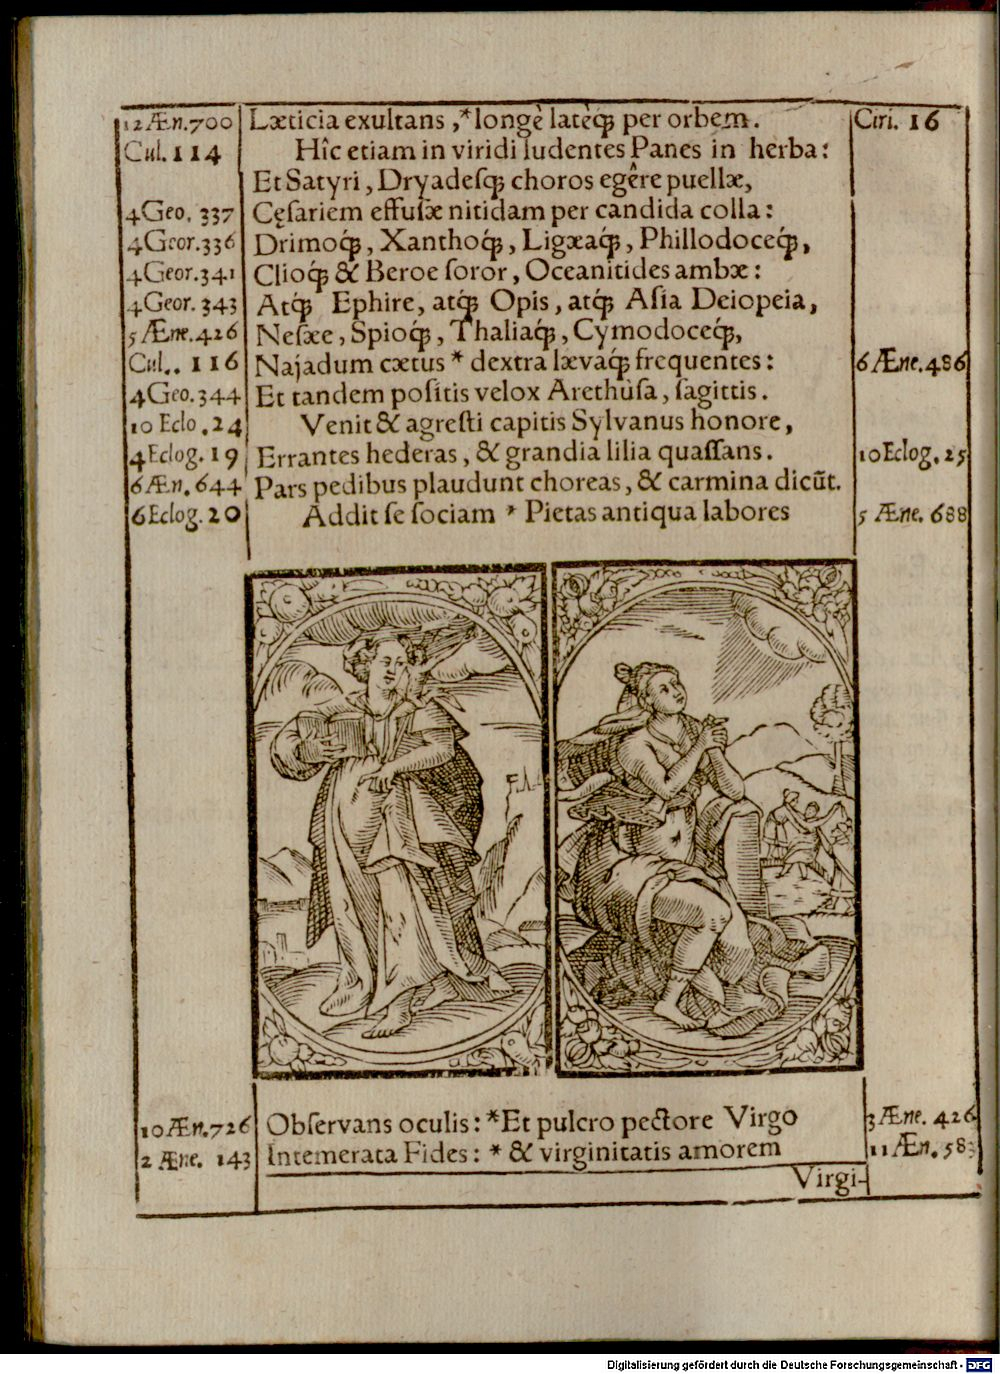 12Æn.700 Læticia exultans ,* longè latèq́; per orbem. Ciri. 16
Cul. 114 Hîc etiam in viridi ludentes Panes in herba:
Et Satyri, Dryadesq; choros egêre puellæ,
4Geo. 337 Cęsariem effusæ nitidam per candida colla:
4Geor.336 Drimoq́;, Xanthoq́;, Ligæaq́;, Phillodoceq́;,
4Geor.341 Clioq́; & Beroe soror, Oceanitides ambæ:
4Geor. 343 Atq́; Ephire, atq́; Opis, atq́; Asia Deiopeia,
5Æne.426 Nesæe, Spioq́;, Thaliaq́;, Cymodoceq́;,
Cul.. 116 Najadum cœtus * dextra lævaq́; frequentes: 6 Æne.486
4Geo.344 Et tandem positis velox Arethusa, sagittis.
10 Eclo .24 Venit & agresti capitis Sylvanus honore,
4Eclog. 19 Errantes hederas, & grandia lilia quassans. 10Eclog. 25
6Æn. 644 Pars pedibus plaudunt choreas, & carmina dicũt.
6Eclog. 20 Addit se sociam * Pietas antiqua labores 5 Æne. 688
10Æn.726 Observans oculis: *Et pulcro pectore Virgo 3Æne. 426
2 Æne. 143 Intemerata Fides: * & virginitatis amorem 11Æn. 583
Virgi-
Digitalisierung gefördert durch die Deutsche Forschungsgemeinschaft - DFG